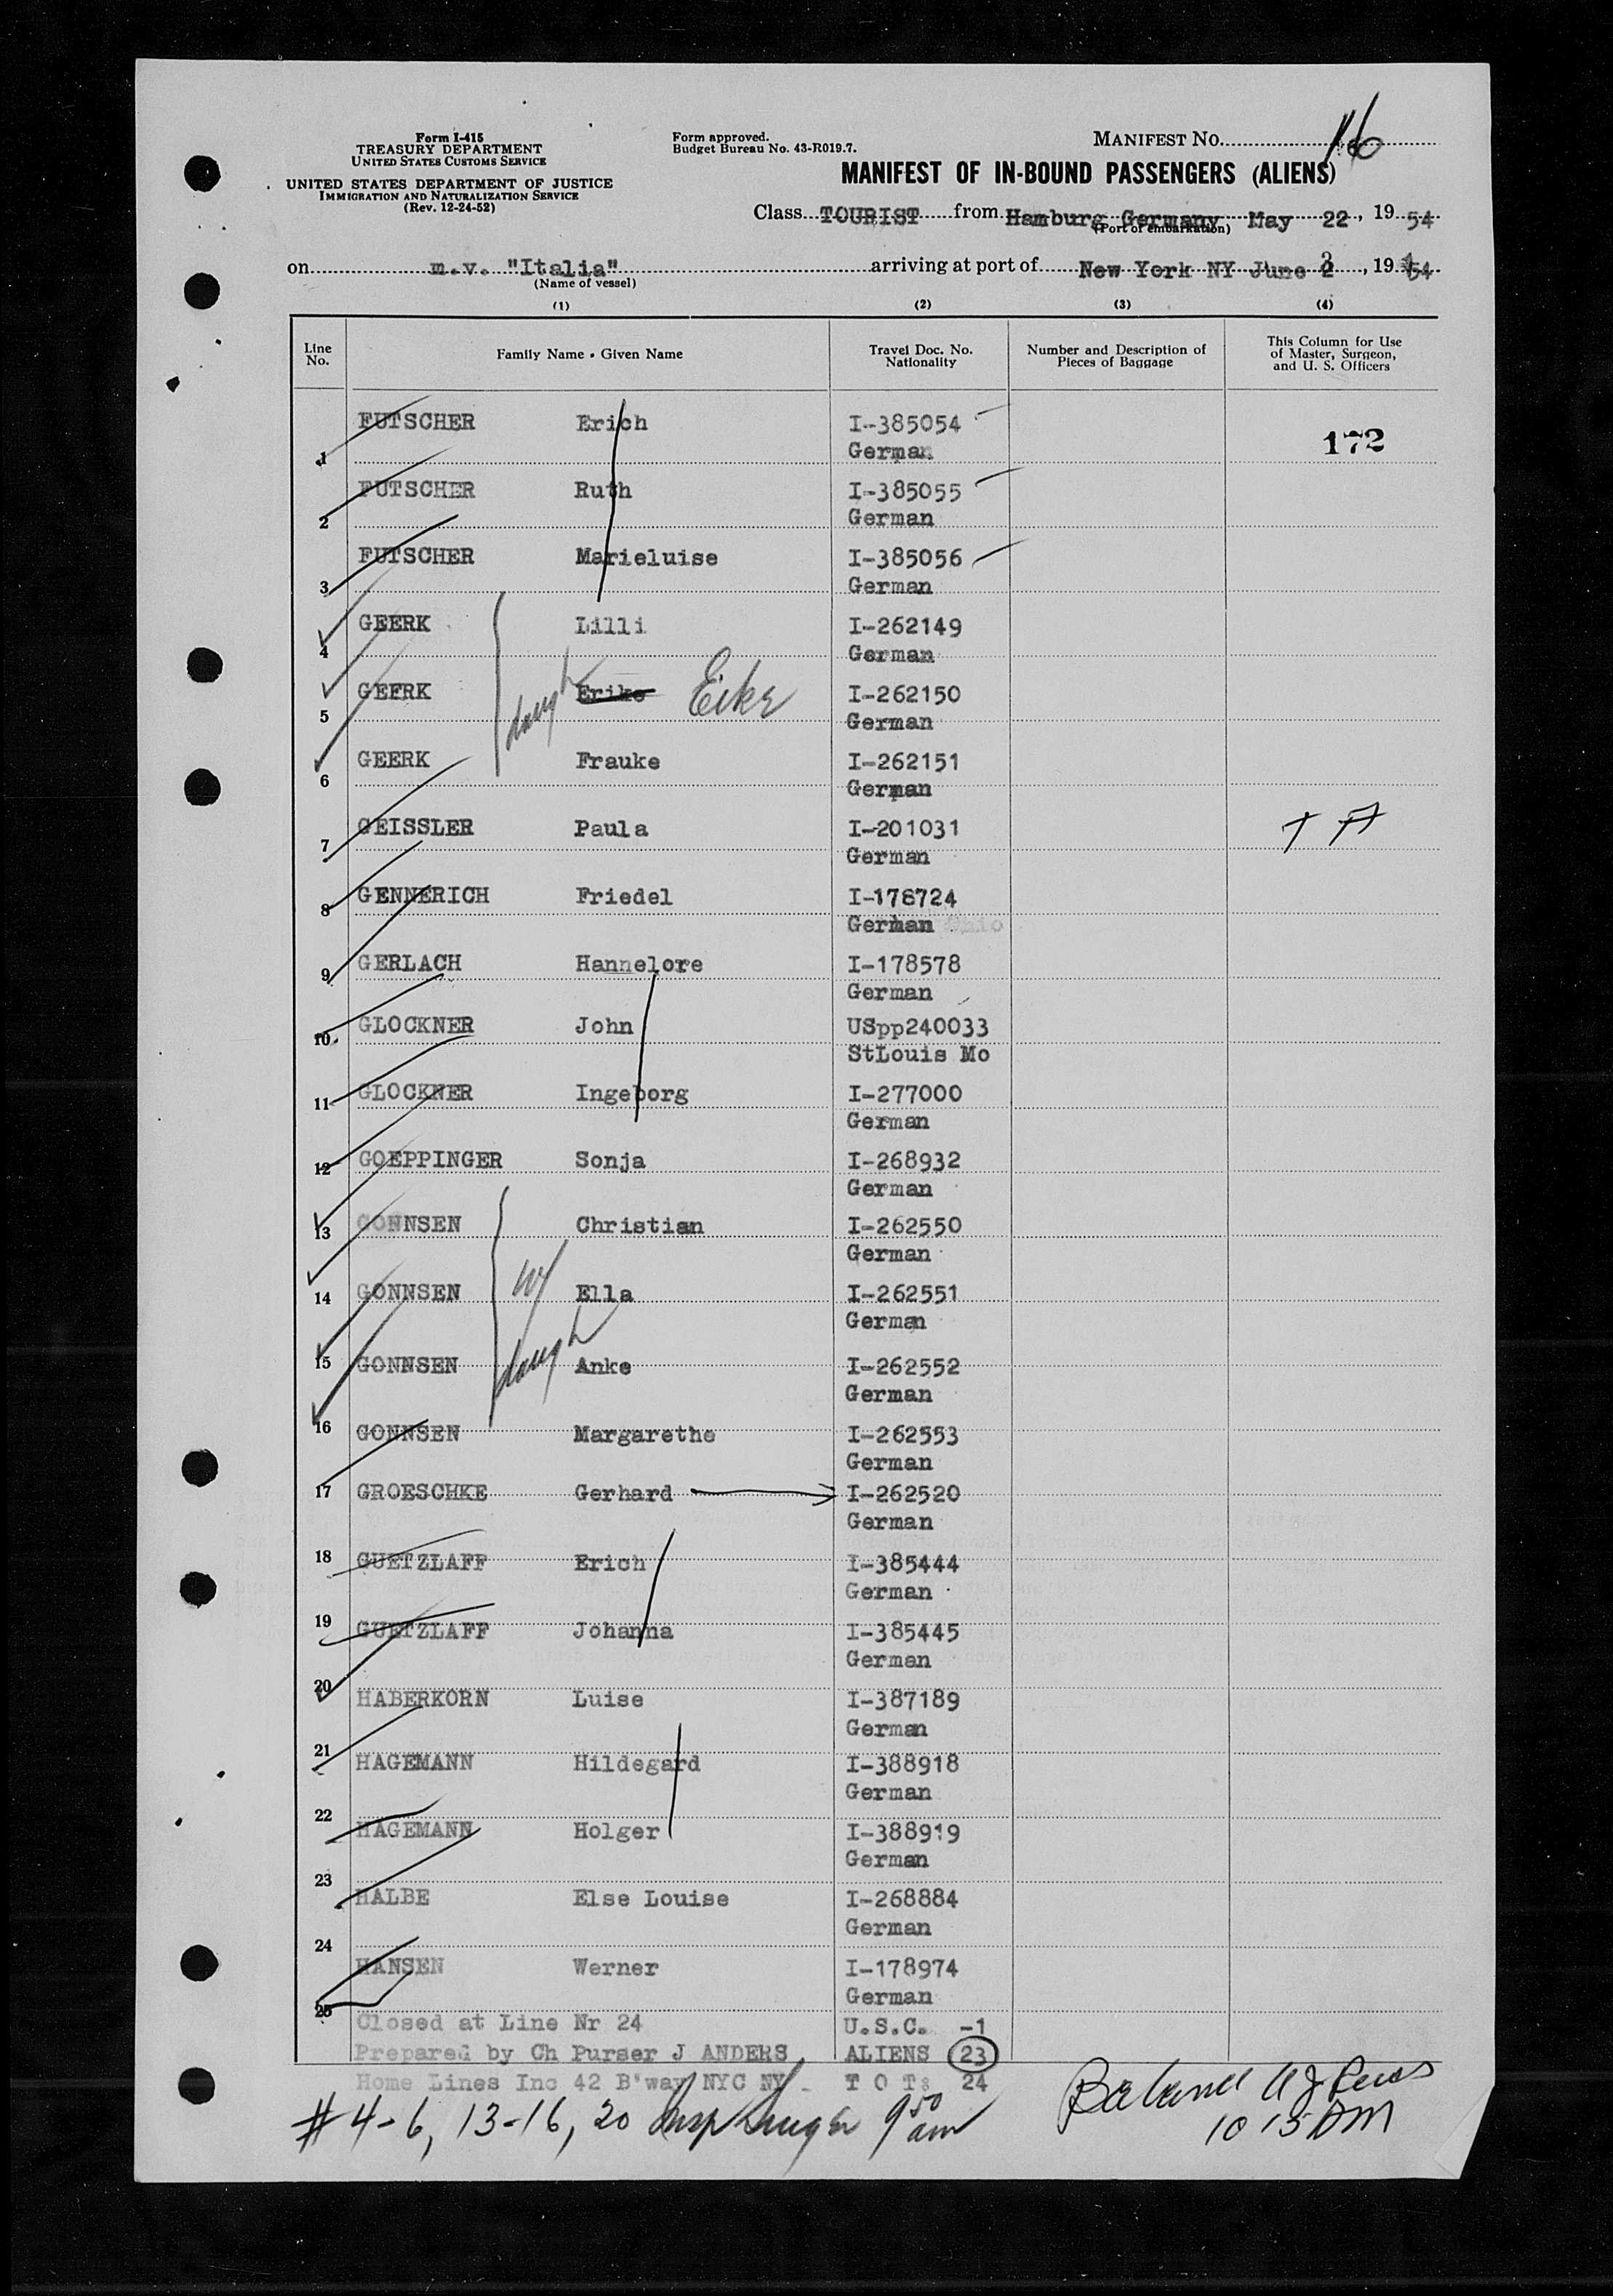 Form I-415
TREASURY DEPARTMENT
UNITED STATES CUSTOMS SERVICE
UNITED STATES DEPARTMENT OF JUSTICE
IMMIGRATION AND NATURALIZATION SERVICE
(Rev. 12-24-52)
Form approved.
Budget Bureau No. 43-R019.7.
MANIFEST NO. 16
MANIFEST OF IN-BOUND PASSENGERS (ALIENS)
Class TOURIST from Hamburg Germany May 22, 19 54
(Port of embarkation)
on m.v. "Italia" arriving at port of New York NY June 3, 19 54
(Name of vessel)
(1) (2) (3) (4)
Line No. Family Name - Given Name Travel Doc. No. Nationality Number and Description of Pieces of Baggage This Column for Use of Master, Surgeon, and U. S. Officers
1 FUTSCHER Erich I-385054
German 172
2 FUTSCHER Ruth I-385055
German
3 FUTSCHER Marieluise I-385056
German
4 GEERK Lilli I-262149
German
5 GEERK daugh Erike Eike I-262150
German
6 GEERK Frauke I-262151
German
7 GEISSLER Paula I-201031 T A
German
8 GENNERICH Friedel I-178724
German
9 GERLACH Hannelore I-178578
German
10 GLOCKNER John USpp240033
StLouis Mo
11 GLOCKNER Ingeborg I-277000
German
12 GOEPPINGER Sonja I-268932
German
13 GONNSEN Christian I-262550
German
14 GONNSEN W Ella I-262551
German
15 GONNSEN daugh Anke I-262552
German
16 GONNSEN Margarethe I-262553
German
17 GROESCHKE Gerhard I-262520
German
18 GUETZLAFF Erich I-385444
German
19 GUETZLAFF Johanna I-385445
German
20 HABERKORN Luise I-387189
German
21 HAGEMANN Hildegard I-388918
German
22 HAGEMANN Holger I-388919
German
23 HALBE Else Louise I-268884
German
24 HANSEN Werner I-178974
German
25 Closed at Line Nr 24 U.S.C. -1
Prepared by Ch Purser J ANDERS ALIENS 23
Home Lines Inc 42 B'way NYC NY T O T: 24
# 4-6, 13-16, 20 Insp 9 50 am
10 15 AM